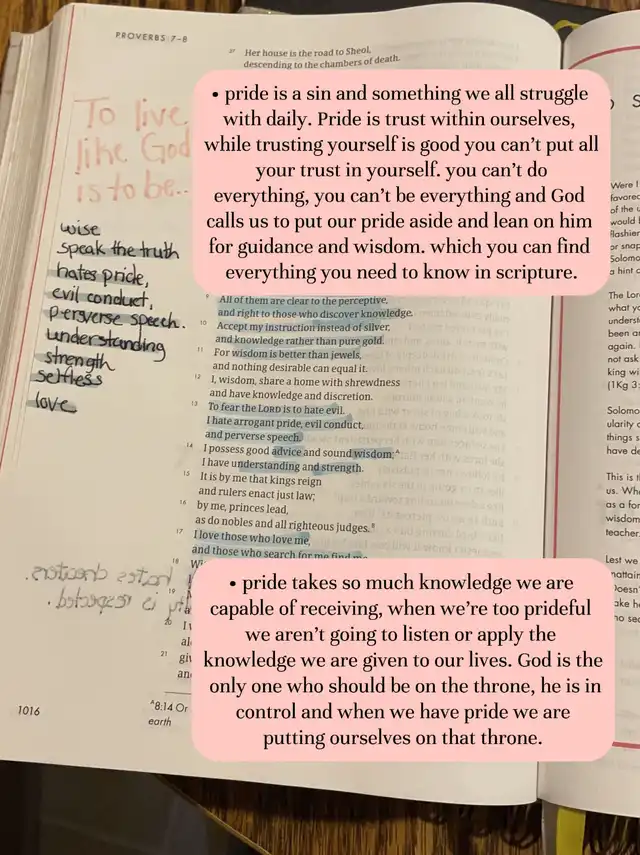 PROVERBS 7–8
27 Her house is the road to Sheol,
descending to the chambers of death.
To live
like God
is to be..
wise
speak the truth
hates pride,
evil conduct,
perverse speech.
understanding
strength
selfless
love
• pride is a sin and something we all struggle
with daily. Pride is trust within ourselves,
while trusting yourself is good you can’t put all
your trust in yourself. you can’t do
everything, you can’t be everything and God
calls us to put our pride aside and lean on him
for guidance and wisdom. which you can find
everything you need to know in scripture.
9 All of them are clear to the perceptive,
and right to those who discover knowledge.
10 Accept my instruction instead of silver,
and knowledge rather than pure gold.
11 For wisdom is better than jewels,
and nothing desirable can equal it.
12 I, wisdom, share a home with shrewdness
and have knowledge and discretion.
13 To fear the LORD is to hate evil.
I hate arrogant pride, evil conduct,
and perverse speech.
14 I possess good advice and sound wisdom;ᴬ
I have understanding and strength.
15 It is by me that kings reign
and rulers enact just law;
16 by me, princes lead,
as do nobles and all righteous judges.ᴮ
17 I love those who love me,
and those who search for me find me.
18 Wi
19
20 I
al
21 giv
an
• pride takes so much knowledge we are
capable of receiving, when we’re too prideful
we aren’t going to listen or apply the
knowledge we are given to our lives. God is the
only one who should be on the throne, he is in
control and when we have pride we are
putting ourselves on that throne.
1016
ᴬ8:14 Or
earth
S
Were I
favored
of the u
would b
flashier
or snap
Solomo
a hint o
The Lor
what yo
underst
been ar
again. I
not ask
king wi
(1Kg 3:
Solomo
ularity o
things s
have de
This is t
us. Wh
as a for
wisdom
teacher.
Lest we
mattain
Doesn'
ake he
no sec